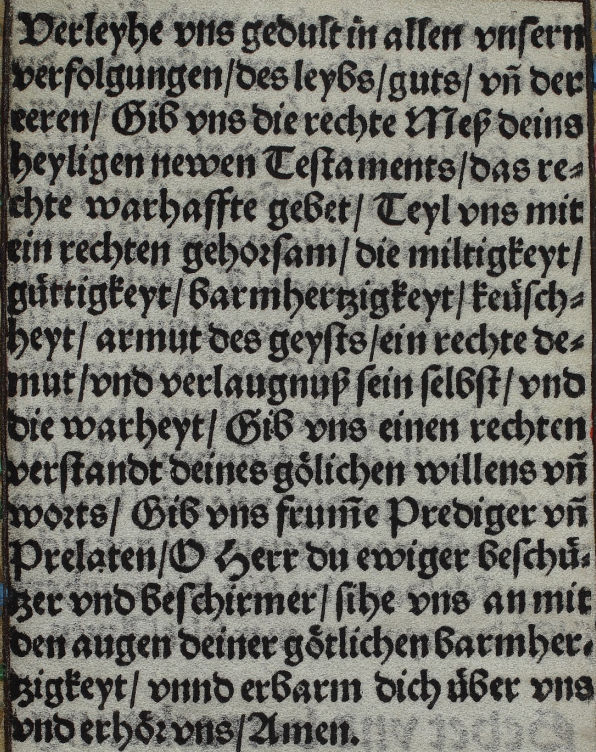 Verleyhe vns gedult in allen vnſern
verfolgungen/des leybs/guts/ vñ der
eeren/ Gib vns die rechte Meß deins
heyligen newen Teſtaments/das re⸗
chte warhaffte gebet/ Teyl vns mit
ein rechten gehorſam/ die miltigkeyt/
güttigkeyt/ barmhertzigkeyt/keüſch⸗
heyt/ armut des geyſts/ein rechte de⸗
mut/vnd verlaugnuß ſein ſelbſt/ vnd
die warheyt/ Gib vns einen rechten
verſtandt deines gölichen willens vñ
worts/ Gib vns frum̃e Prediger vñ
Prelaten/O Herr du ewiger beſchü⸗
tzer vnd beſchirmer/ ſihe vns an mit
den augen deiner götlichen barmher⸗
tzigkeyt/ vnnd erbarm dich über vns
vnd erhör vns/Amen.